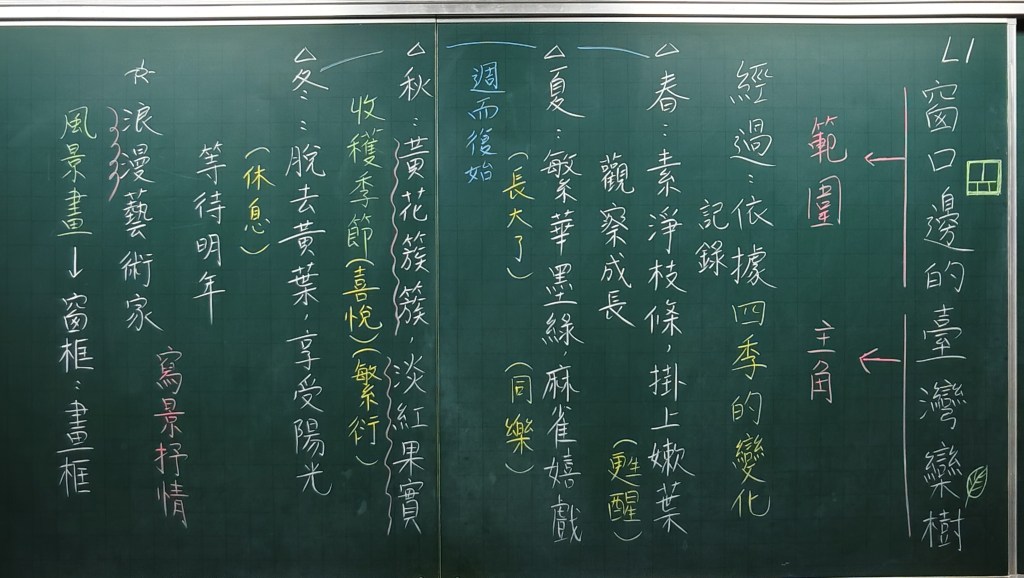 L1
窗口邊的臺灣欒樹
範圍
主角
經過：依據四季的變化
記錄
△春：素淨枝條，掛上嫩葉
觀察成長
(甦醒)
△夏：繁華墨綠，麻雀嬉戲
(長大了)
(同樂)
週而復始
△秋：黃花簇簇，淡紅果實
收穫季節(喜悅)(繁衍)
△冬：脫去黃葉，享受陽光
(休息)
等待明年
寫景抒情
☆浪漫藝術家
風景畫→窗框：畫框